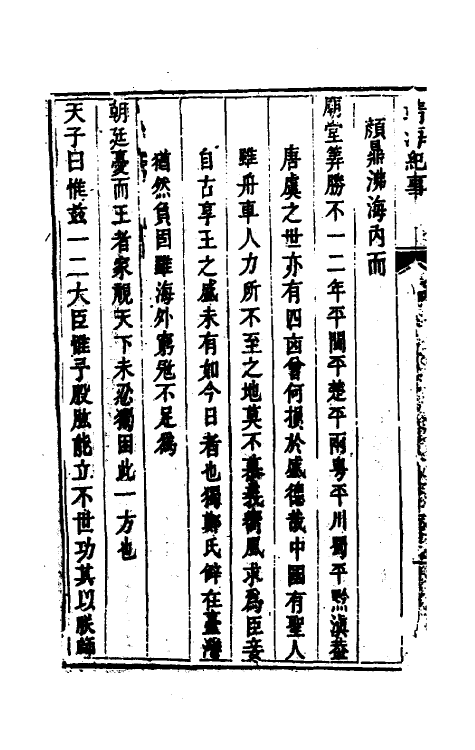 靖海紀事
顏鼎沸海內而
廟堂算勝不一二年平閩平楚平兩粵平川蜀平黔滇蓋
唐虞之世亦有四凶曾何損於盛德哉中國有聖人
雖舟車人力所不至之地莫不慕義嚮風求爲臣妾
自古享王之盛未有如今日者也獨鄭氏僻在臺灣
猶然負固雖海外窮兇不足爲
朝廷憂而王者家視天下未忍獨困此一方也
天子曰惟茲一二大臣惟予股肱能立不世功其以朕師